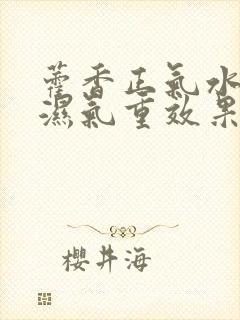 藿香正氣水
濕氣重效果
櫻井海